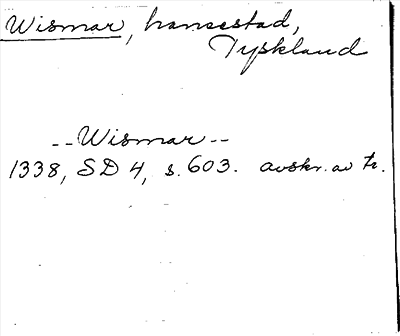 Wismar, hansestad,
Tyskland
--Wismar--
1338, SD 4, s. 603. avskr. av tr.